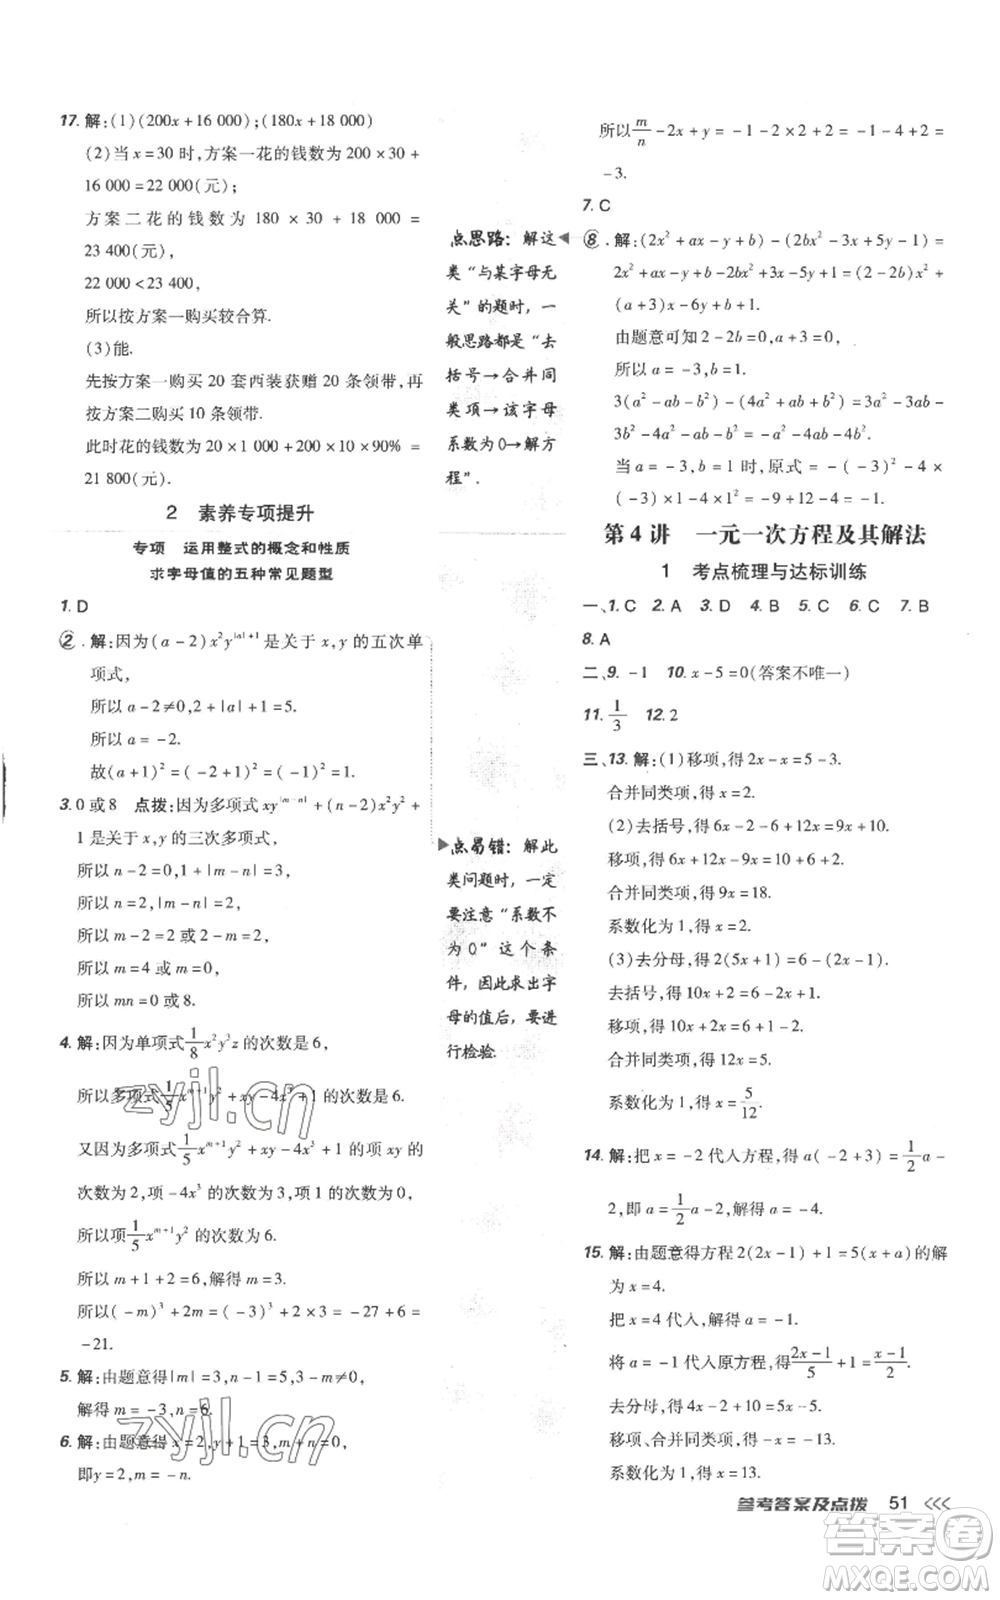 17. 解:(1)(200x+16 000);(180x+18 000)
(2)当 x=30 时,方案一花的钱数为 200×30+
16 000=22 000(元);
方案二花的钱数为 180×30+18 000=
23 400(元),
22 000<23 400,
所以按方案一购买较合算.
(3)能.
先按方案一购买 20 套西装获赠 20 条领带,再
按方案二购买 10 条领带.
此时花的钱数为 20×1 000+200×10×90%=
21 800(元).
2 素养专项提升
专项 运用整式的概念和性质
求字母值的五种常见题型
1. D
2. 解:因为(a-2)x²y^{|a|+1}是关于 x,y 的五次单
项式,
所以 a-2≠0,2+|a|+1=5.
所以 a=-2.
故(a+1)²=(-2+1)²=1.
3. 0 或 8 点拨:因为多项式 xy^{|m-n|}+(n-2)x²y²+
1 是关于 x,y 的三次多项式,
所以 n-2=0,1+|m-n|=3.
所以 n=2,|m-n|=2.
所以 m-2=2 或 2-m=2.
所以 m=4 或 m=0.
所以 mn=0 或 8.
4. 解:因为单项式 1/8 x²y³z 的次数是 6,
所以多项式 1/5 x^{m+1}y²+xy-4x³+1 的次数是 6.
又因为多项式 1/5 x^{m+1}y²+xy-4x³+1 的项 xy 的
次数为 2,项-4x³ 的次数为 3,项 1 的次数为 0,
所以项 1/5 x^{m+1}y² 的次数为 6.
所以 m+1+2=6,解得 m=3.
所以(-m)³+2m=(-3)³+2×3=-27+6=
-21.
5. 解:由题意得|m|=3,n-1=5,3-m≠0,
解得 m=-3,n=6.
6. 解:由题意得 x=2,y+1=3,m+n=0,
即 y=2,m=-n.
点思路:解这
类“与某字母无
关”的题时,一
般思路都是“去
括号→合并同
类项→该字母
系数为0→解方
程”.
点易错:解此
类问题时,一定
要注意“系数不
为0”这个条
件,因此求出字
母的值后,要进
行检验.
所以 m/n -2x+y=-1-2×2+2=-1-4+2=
-3.
7. C
8. 解:(2x²+ax-y+b)-(2bx²-3x+5y-1)=
2x²+ax-y+b-2bx²+3x-5y+1=(2-2b)x²+
(a+3)x-6y+b+1.
由题意可知 2-2b=0,a+3=0,
所以 a=-3,b=1.
3(a²-ab-b²)-(4a²+ab+b²)=3a²-3ab-
3b²-4a²-ab-b²=-a²-4ab-4b².
当 a=-3,b=1 时,原式=-(-3)²-4×
(-3)×1-4×1²=-9+12-4=-1.
第 4 讲 一元一次方程及其解法
1 考点梳理与达标训练
一、1. C 2. A 3. D 4. B 5. C 6. C 7. B
8. A
二、9. -1 10. x-5=0(答案不唯一)
11. 1/3 12. 2
三、13. 解:(1)移项,得 2x-x=5-3.
合并同类项,得 x=2.
(2)去括号,得 6x-6+12x=9x+12.
移项,得 6x+12x-9x=12+6.
合并同类项,得 9x=18.
系数化为 1,得 x=2.
(3)去分母,得 2(5x+1)=6-(2x-1).
去括号,得 10x+2=6-2x+1.
移项,得 10x+2x=6+1-2.
合并同类项,得 12x=5.
系数化为 1,得 x=5/12.
14. 解:把 x=-2 代入方程,得 a(-2+3)=1/2 a-
2,即 a=1/2 a-2,解得 a=-4.
15. 解:由题意得方程 2(2x-1)+1=5(x+a)的解
为 x=4.
把 x=4 代入,解得 a=-1.
将 a=-1 代入原方程,得 (2x-1)/5 +1=(x-1)/2.
去分母,得 4x-2+10=5x-5.
移项、合并同类项,得-x=-13.
系数化为 1,得 x=13.
参考答案及点拨 51
zyjl.cn
zyjl.cn
答案卷
MXQE.COM